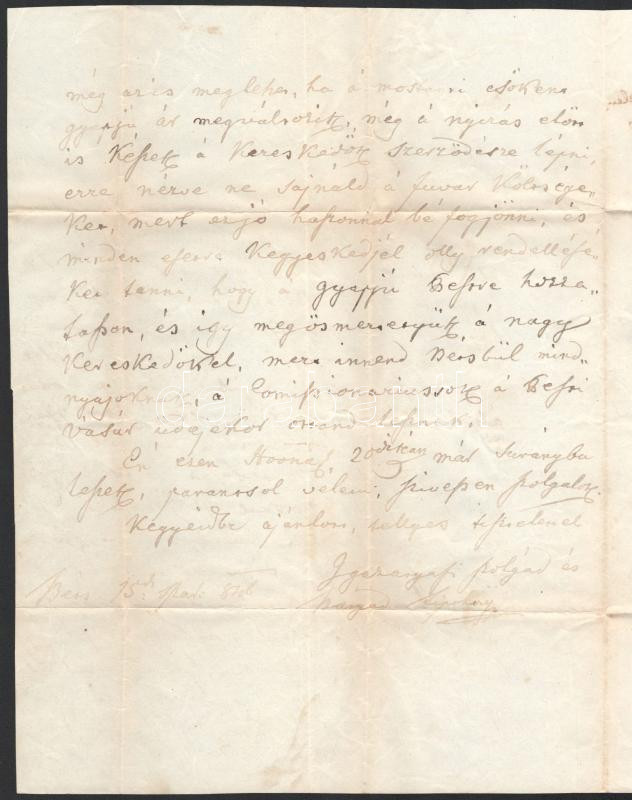 még az is meglehet, ha a mostani csökent
gyapjú ár megváltozik, még a nyirás elött
is készek a Kereskedök szerzödésre lépni,
erre nézve ne sajnáld a fuvar költsége-
ket, mert ez jó haszonnal bé fog jönni, és
minden esetre kegyeskedjél olly rendellése-
ket tenni, hogy a gyapjú Pestre hozza-
tasson, és igy megösmertetyük a nagy
Kereskedökkel, mert innend Bécsbül mind-
nyájoknak, a Comissionariussok a Pesti
vásár idejekor ottand lesznek.
Én ezen Hoonap 20dikán már Surányba
leszek, parancsol velem, szivessen szolgalok.
Kegyeidbe ajánlom, tellyes tisztelettel
Igaz anyafi szolgád és
Bécs 15d